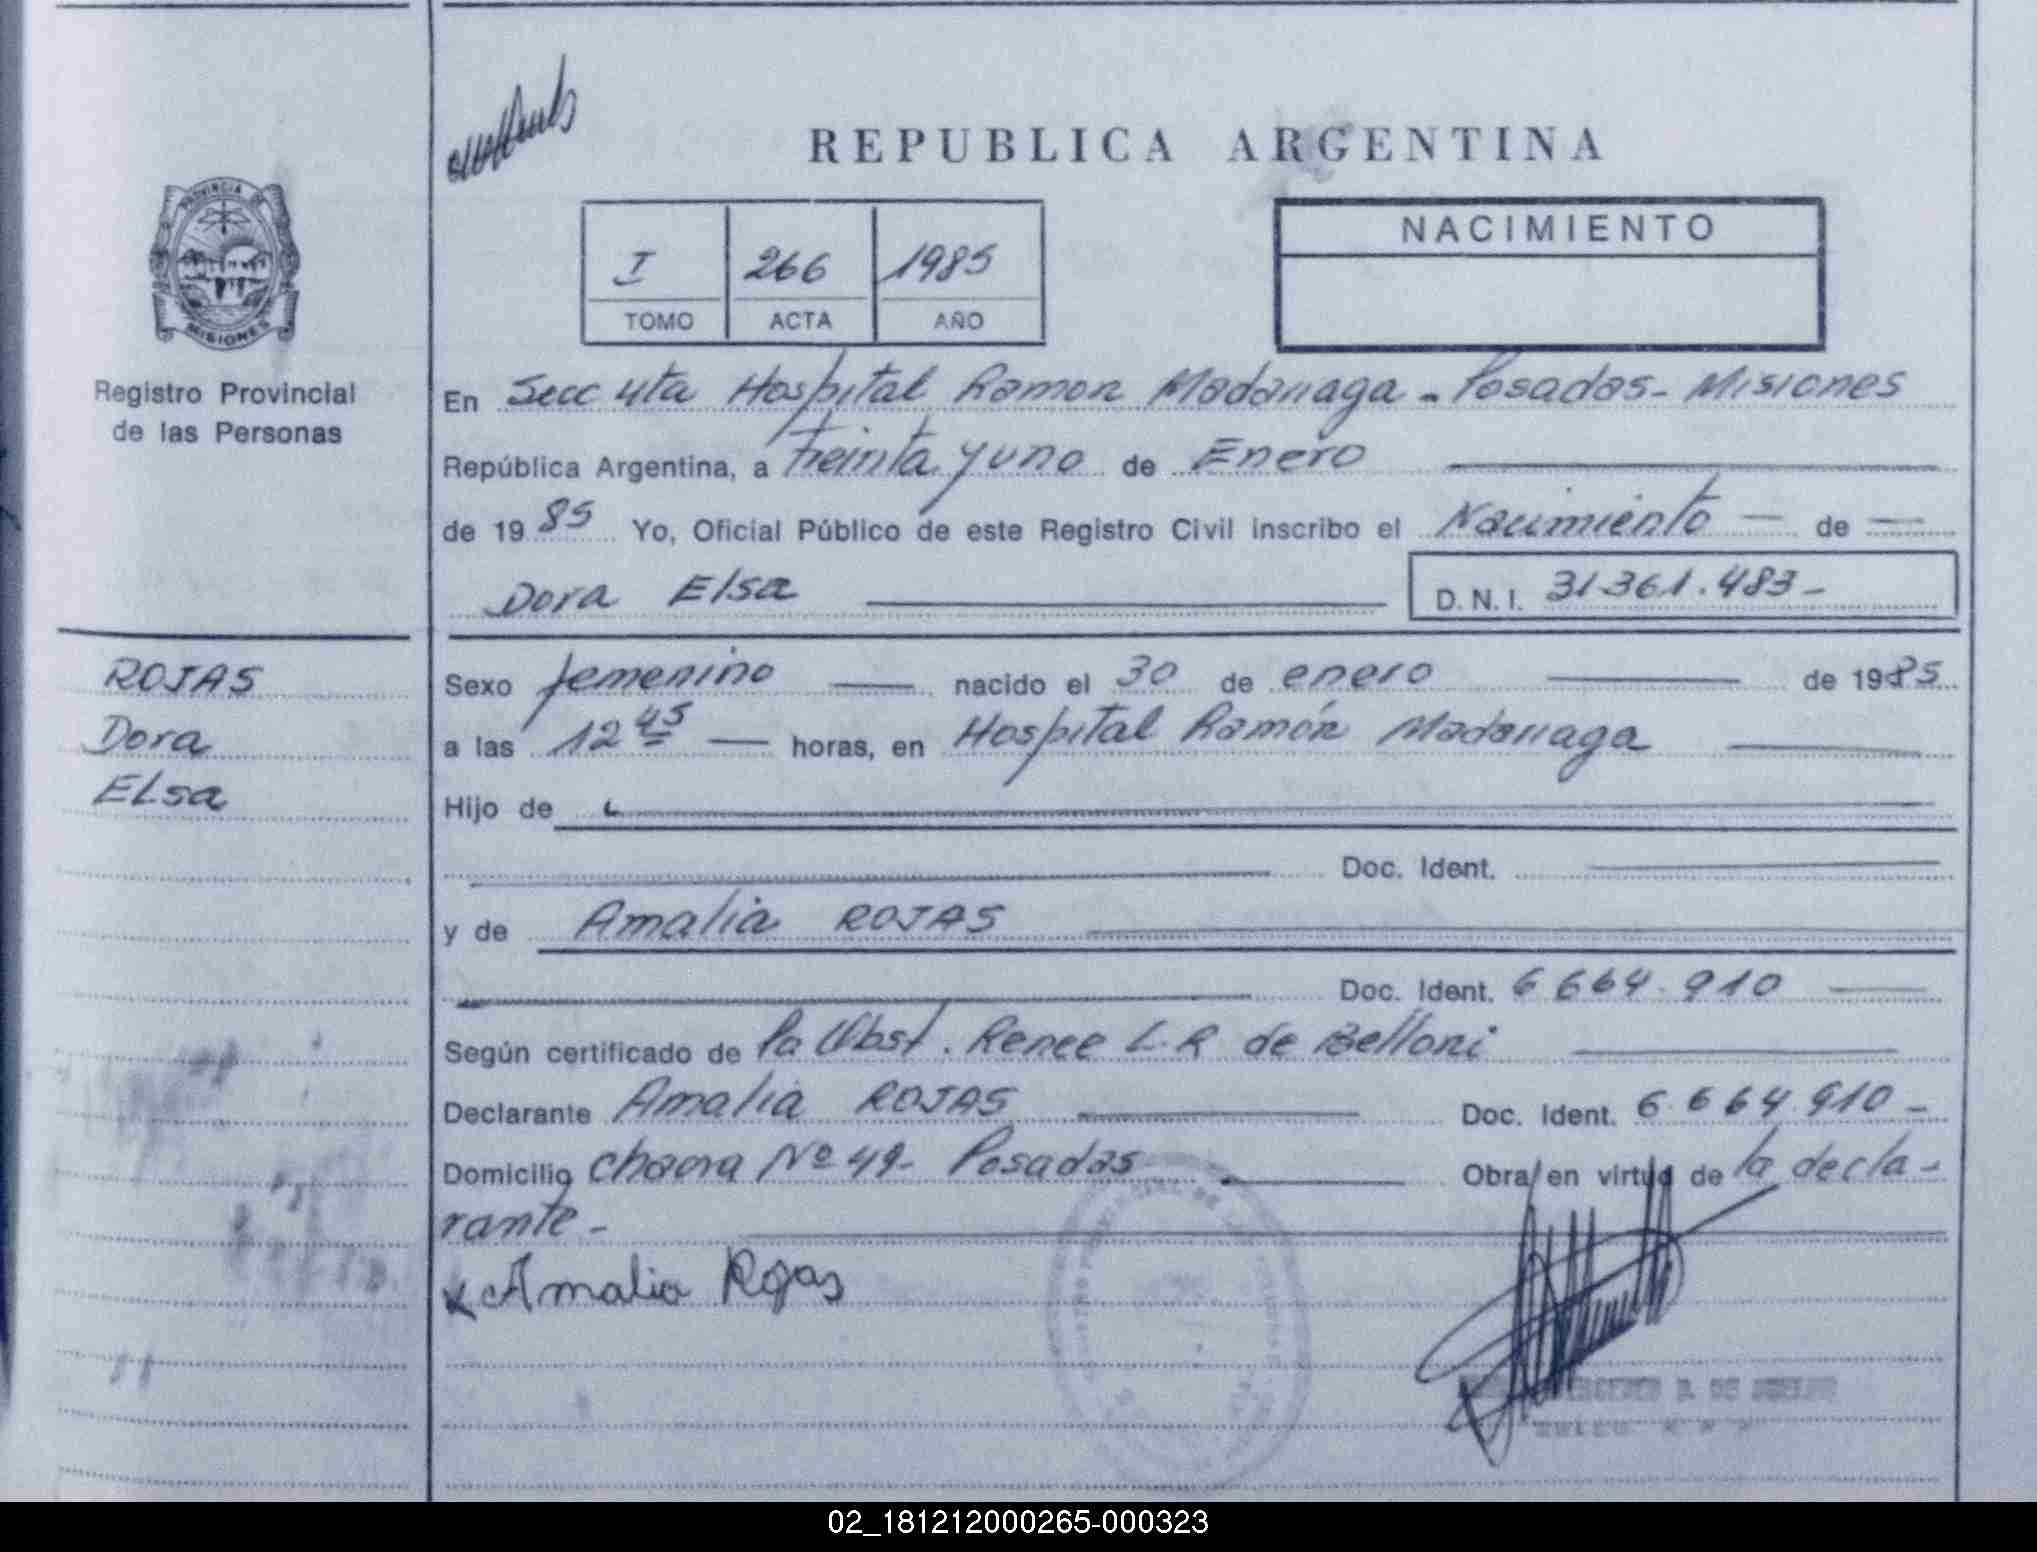 REPUBLICA ARGENTINA
PROVINCIA DE
MISIONES
Registro Provincial
de las Personas
NACIMIENTO
I 266 1985
TOMO ACTA AÑO
En Secc 4ta Hospital Ramon Madariaga - Posadas - Misiones
República Argentina, a treinta y uno de Enero
de 1985 Yo, Oficial Público de este Registro Civil inscribo el Nacimiento — de —
Dora Elsa D.N.I. 31.361.483-
ROJAS
Dora
Elsa
Sexo femenino — nacido el 30 de enero — de 1985
a las 12 45 — horas, en Hospital Ramón Madariaga
Hijo de
Doc. Ident.
y de Amalia ROJAS
Doc. Ident. 6.664.910 —
Según certificado de la Obst. Renee L.R de Belloni
Declarante Amalia ROJAS — Doc. Ident. 6.664.910-
Domicilio chacra Nº 49- Posadas — Obra en virtud de la decla-
rante-
x Amalia Rojas
02_181212000265-000323